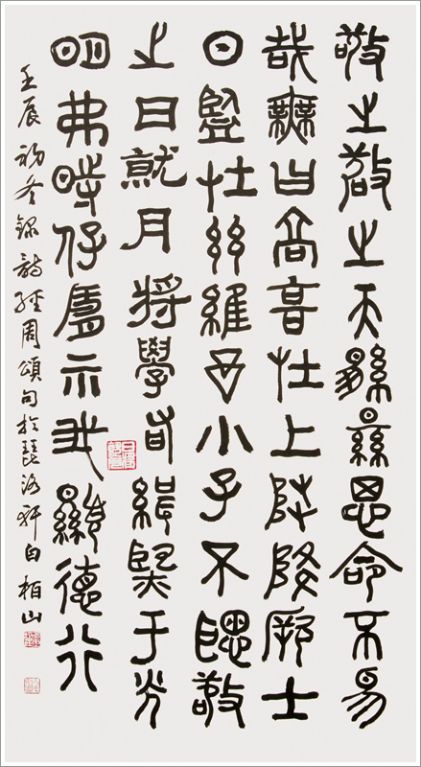 敬之敬之天維顯思命不易
哉無曰高高在上陟降厥士
日監在茲維予小子不聰敬
止日就月將學有緝熙于光
明弗時仔肩示我顯德行
壬辰初冬錄詩經周頌句於琵洛軒白柏山